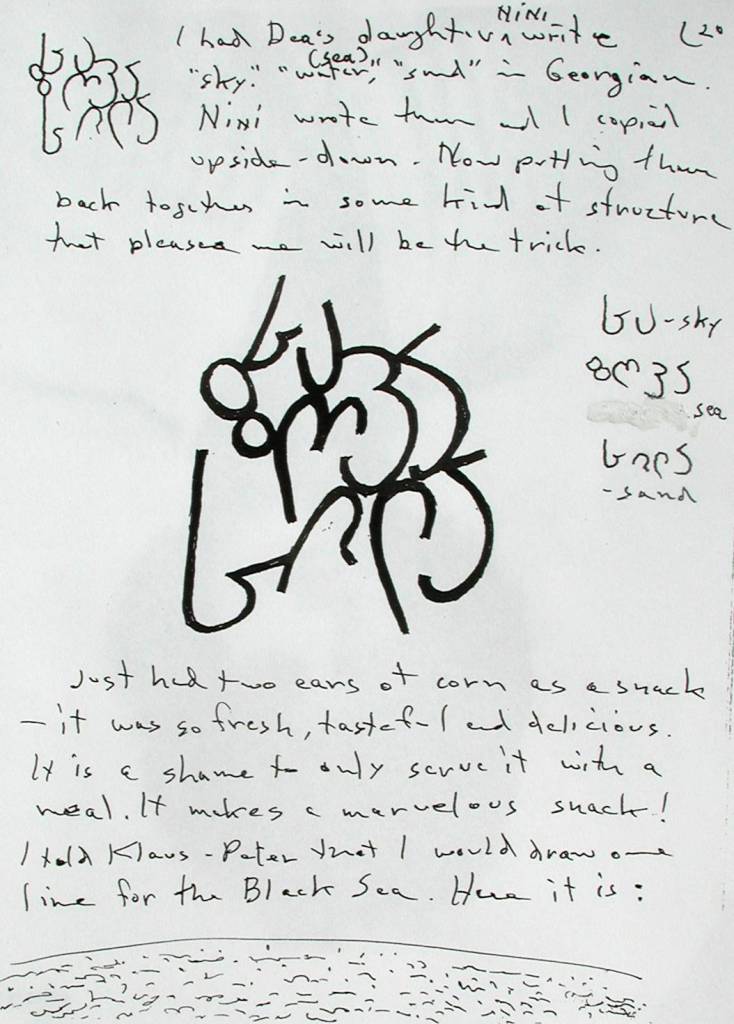 I had Dea's daughter NiNi write
"sky," "water (sea)," "sand" in Georgian.
NiNi wrote them and I copied
upside-down. Now putting them
back together in some kind of structure
that pleases me will be the trick.
-sky
sea
-sand
Just had two ears of corn as a snack
– it was so fresh, tasteful and delicious.
It is a shame to only serve it with a
meal. It makes a marvelous snack!
I told Klaus-Peter that I would draw one
line for the Black Sea. Here it is: